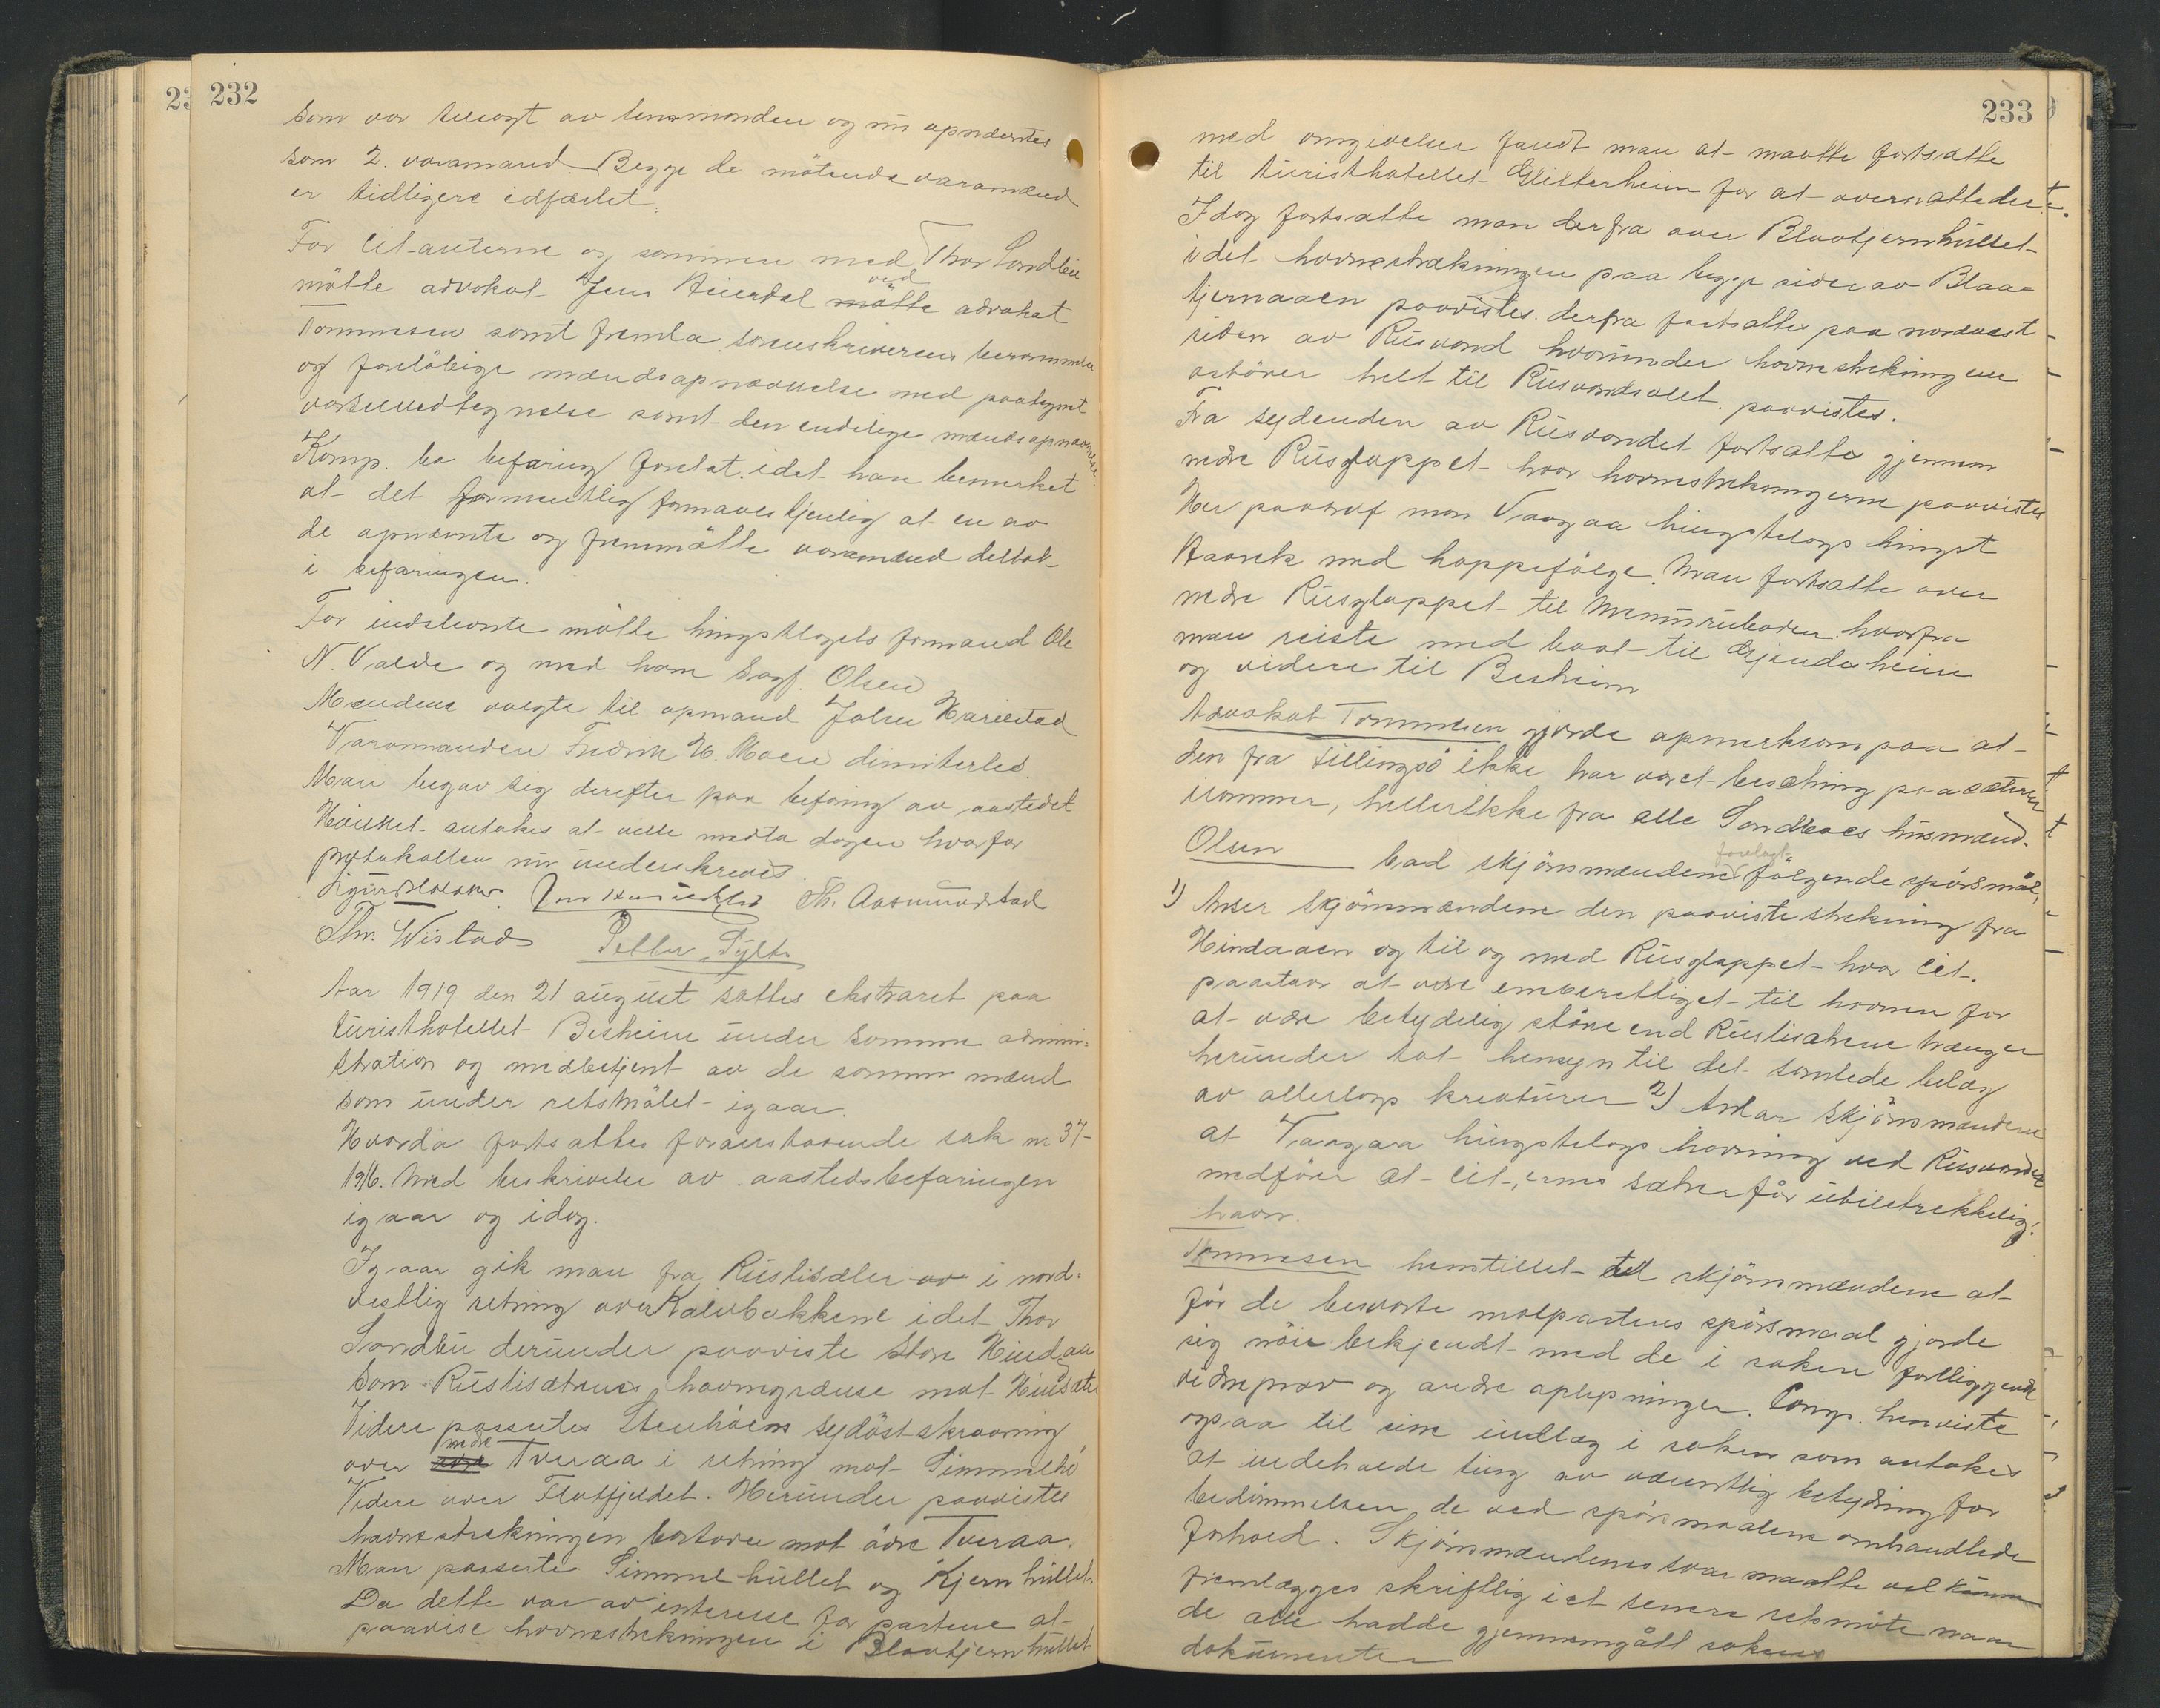 232
som var tilsagt av lensmanden og nu opnævntes
som 2. varamand. Begge de møtende varamænd
er tidligere edfæstet.
For Citanterne og sammen med Thor Sandbu
møtte advokat Jens Auerdal møtte ved advokat
Tommesen samt fremla sorenskriverens berammelse
og foreløbige mændsopnævnelse med paategnet
varselvedtegnelse samt den endelige mændsopnævnelse.
Komp. ba befaring foretat idet han bemerket
at det formentlig formaalstjenlig at en av
de opnævnte og fremmøtte varamænd deltok
i befaringen.
For indstevnte møtte hingstlagets formand Ole
N. Valde og med ham Sagf. Olsen
Mændene valgte til opmand John Harildstad
Varamanden Fredrik H. Moen dimiterted.
Man begav sig derefter paa befaring av aastedet
Hvilket antokes at ville medta dagen hvorfor
protokollen nu underskreves.
Th. Aasmundstad
Thr. Wistad Petter Sylte
Aar 1919 den 21 august sattes ekstraret paa
turisthotellet Besheim under samme admini-
stration og medbetjent av de samme mænd
som under retsmøtet igaar.
Hvorda fortsattes foranstaaende sak nr 37-
1916. Med beskrivelse av aastedsbefaringen
igaar og idag.
Igaar gik man fra Ruslisæter av i nord-
vestlig retning over Kalvbakkene idet Thor
Sandbu derunder paaviste Store Hindaa
som Ruslisætrenes havnegrænse mot Hindsæter
Videre passertes Stenhøens sydøst skraaning
over øvre nedre Tveraa i retning mot Simmelhø
Videre over Flatfjeldet. Herunder paavistes
havnestrekningen bortover mot øvre Tveraa.
Man passerte Simmelhullet og Kjernhullet.
Da dette var av interesse for partene at
paavise havnestrekningen i Blaatjernhullet
233
med omgivelser fandt man at maatte fortsætte
til turisthotellet Glitterheim for at overnatte der.
Idag fortsatte man derfra over Blaatjernhullet
idet havnestrækningen paa begge sider av Blaa-
tjernaaen paavistes. derfra fortsattes paa nordvest
siden av Rusvand hvorunder havnestrekningene
østover helt til Rusvandsoset paavistes.
Fra sydenden av Rusvandet fortsattes gjennem
nedre Rusglappet hvor havnestrekningerne paavistes
Her paatraf man Vaagaa hingstelags hingst
Aasrek med hoppefølge. Man fortsatte over
nedre Rusglappet til Memuruboden hvorfra
man reiste med baat til Gjendesheim
og videre til Besheim
Advokat Tommesen gjorde opmerksom paa at
den fra Sillingsø ikke har været besætning paa sæteren
isommer, heller ikke fra alle Sandbues husmænd.
Olsen bad skjønsmændene forelagt følgende spørsmål,
1) Anser skjønsmændene den paaviste strekning fra
Hindaaen og til og med Rusglappet hvor Cit.
paastaar at være eneberettiget til havnen for
at være betydelig større end Ruslisætrene trænger
herunder tat hensyn til det samlede belæg
av allerslags kreaturer 2) Antar skjønsmændene
at Vaagaa hingstelags havning ved Rusvandet
medfører at cit.,ernes sætre får utilstrekkelig
havn.
Tommesen henstillet til skjønsmændene at
før de besvarte motpartens spørsmaal gjorde
sig nøie bekjendt med de i saken forliggende
vidneprov og andre oplysninger. Comp. henviste
ogsaa til sine indlæg i saken som antokes
at indeholde ting av væsentlig betydning for
bedømmelsen, de ved spørsmaalene omhandlede
forhold. Skjønsmændenes svar maatte vel kunne
fremlægges skriftlig i et senere retsmøte naar
de alle hadde gjennemgått sakens
dokumenter